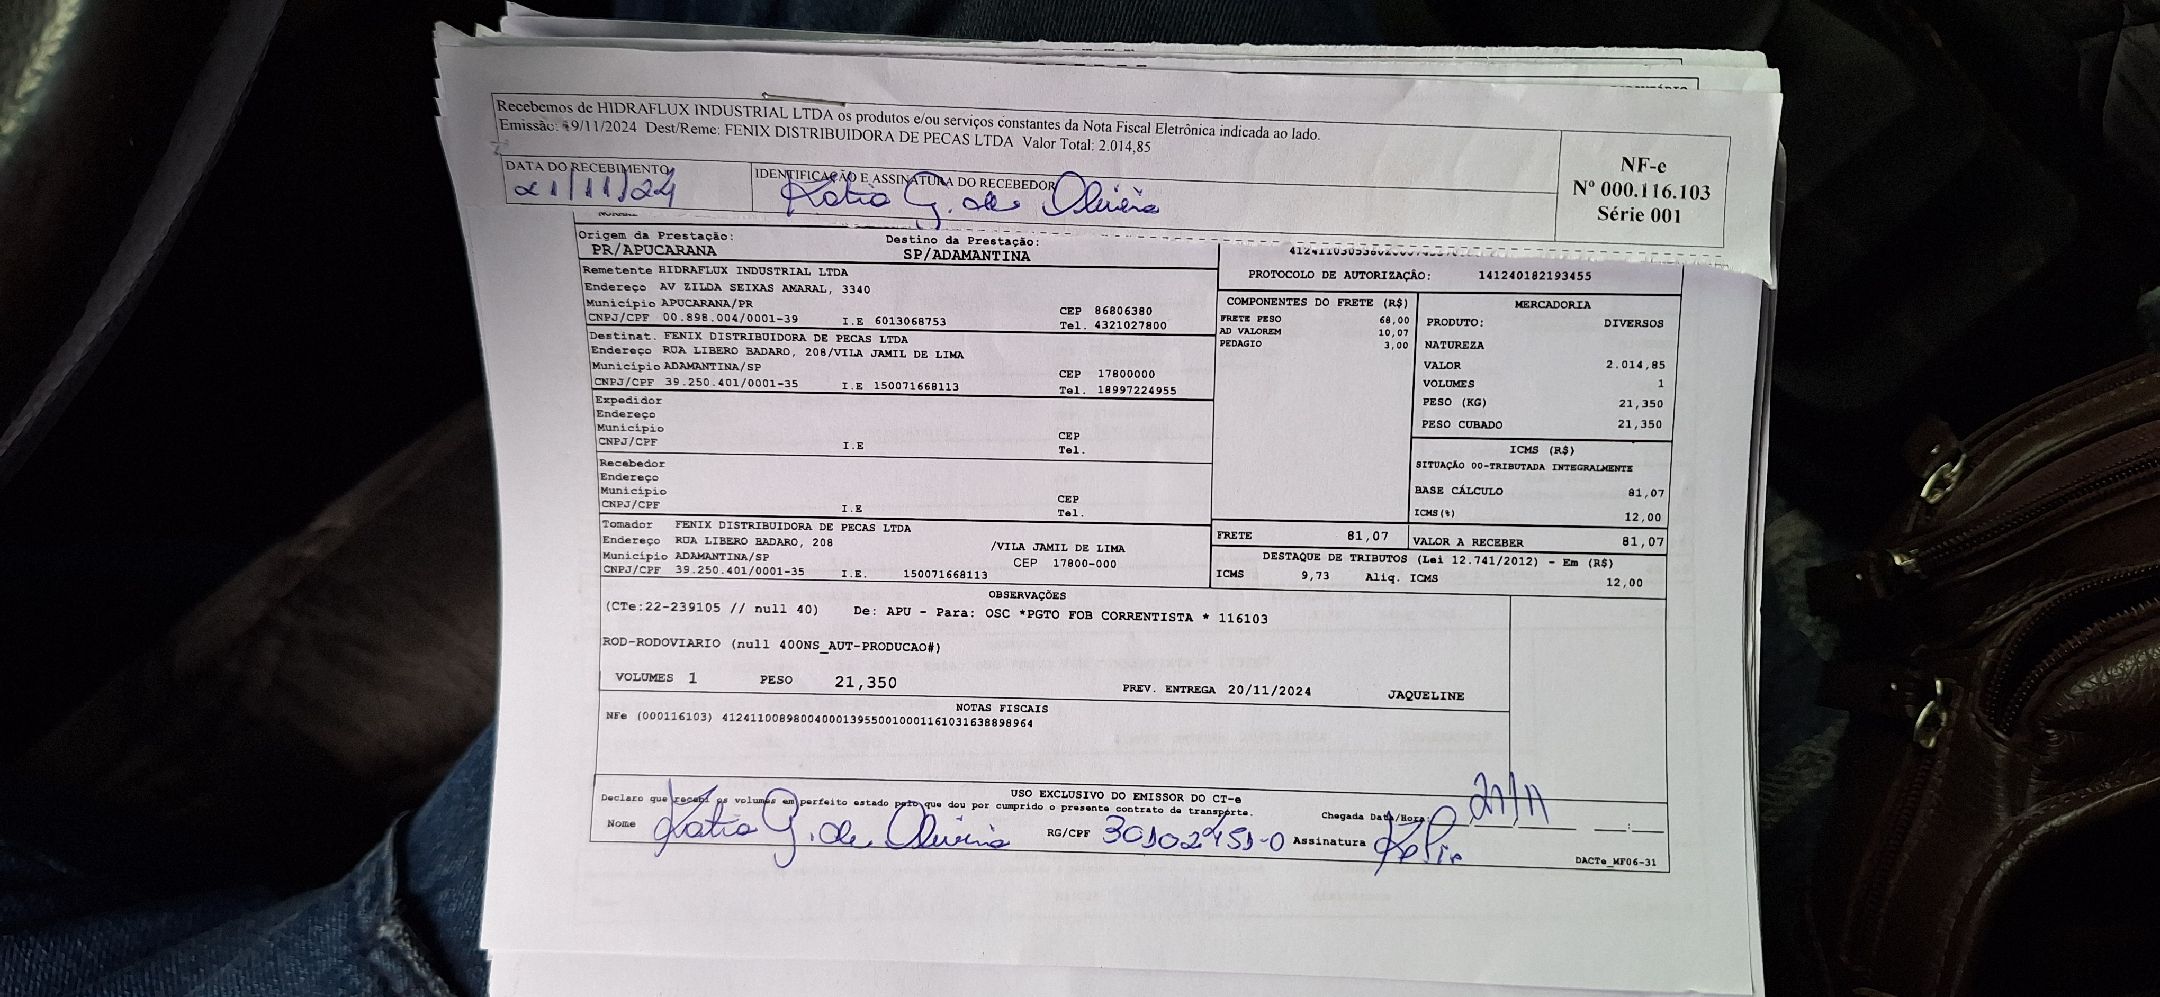 Recebemos de HIDRAFLUX INDUSTRIAL LTDA os produtos e/ou serviços constantes da Nota Fiscal Eletrônica indicada ao lado.
Emissão: 19/11/2024 Dest/Reme: FENIX DISTRIBUIDORA DE PECAS LTDA Valor Total: 2.014,85
DATA DO RECEBIMENTO
21/11/24
IDENTIFICAÇÃO E ASSINATURA DO RECEBEDOR
Katia G. de Oliveira
NF-e
Nº 000.116.103
Série 001
Origem da Prestação:
PR/APUCARANA
Destino da Prestação:
SP/ADAMANTINA
Remetente HIDRAFLUX INDUSTRIAL LTDA
Endereço AV ZILDA SEIXAS AMARAL, 3340
Município APUCARANA/PR CEP 86806380
CNPJ/CPF 00.898.004/0001-39 I.E 6013068753 Tel. 4321027800
Destinat. FENIX DISTRIBUIDORA DE PECAS LTDA
Endereço RUA LIBERO BADARO, 208/VILA JAMIL DE LIMA
Município ADAMANTINA/SP CEP 17800000
CNPJ/CPF 39.250.401/0001-35 I.E 150071668113 Tel. 18997224955
Expedidor
Endereço
Município CEP
CNPJ/CPF I.E Tel.
Recebedor
Endereço
Município CEP
CNPJ/CPF I.E Tel.
Tomador FENIX DISTRIBUIDORA DE PECAS LTDA
Endereço RUA LIBERO BADARO, 208 /VILA JAMIL DE LIMA
Município ADAMANTINA/SP CEP 17800-000
CNPJ/CPF 39.250.401/0001-35 I.E. 150071668113
PROTOCOLO DE AUTORIZAÇÃO: 141240182193455
COMPONENTES DO FRETE (R$)
FRETE PESO 68,00
AD VALOREM 10,07
PEDAGIO 3,00
MERCADORIA
PRODUTO: DIVERSOS
NATUREZA
VALOR 2.014,85
VOLUMES 1
PESO (KG) 21,350
PESO CUBADO 21,350
ICMS (R$)
SITUAÇÃO 00-TRIBUTADA INTEGRALMENTE
BASE CÁLCULO 81,07
ICMS(%) 12,00
FRETE 81,07 VALOR A RECEBER 81,07
DESTAQUE DE TRIBUTOS (Lei 12.741/2012) - Em (R$)
ICMS 9,73 Aliq. ICMS 12,00
OBSERVAÇÕES
(CTe:22-239105 // null 40) De: APU - Para: OSC *PGTO FOB CORRENTISTA * 116103
ROD-RODOVIARIO (null 400NS_AUT-PRODUCAO#)
VOLUMES 1 PESO 21,350 PREV. ENTREGA 20/11/2024 JAQUELINE
NOTAS FISCAIS
NFe (000116103) 41241100898004000139550010001161031638898964
USO EXCLUSIVO DO EMISSOR DO CT-e
Declaro que recebi os volumes em perfeito estado pelo que dou por cumprido o presente contrato de transporte.
Chegada Data/Hora: 21/11
Nome Katia G. de Oliveira RG/CPF 30102451-0 Assinatura
DACTe_MF06-31